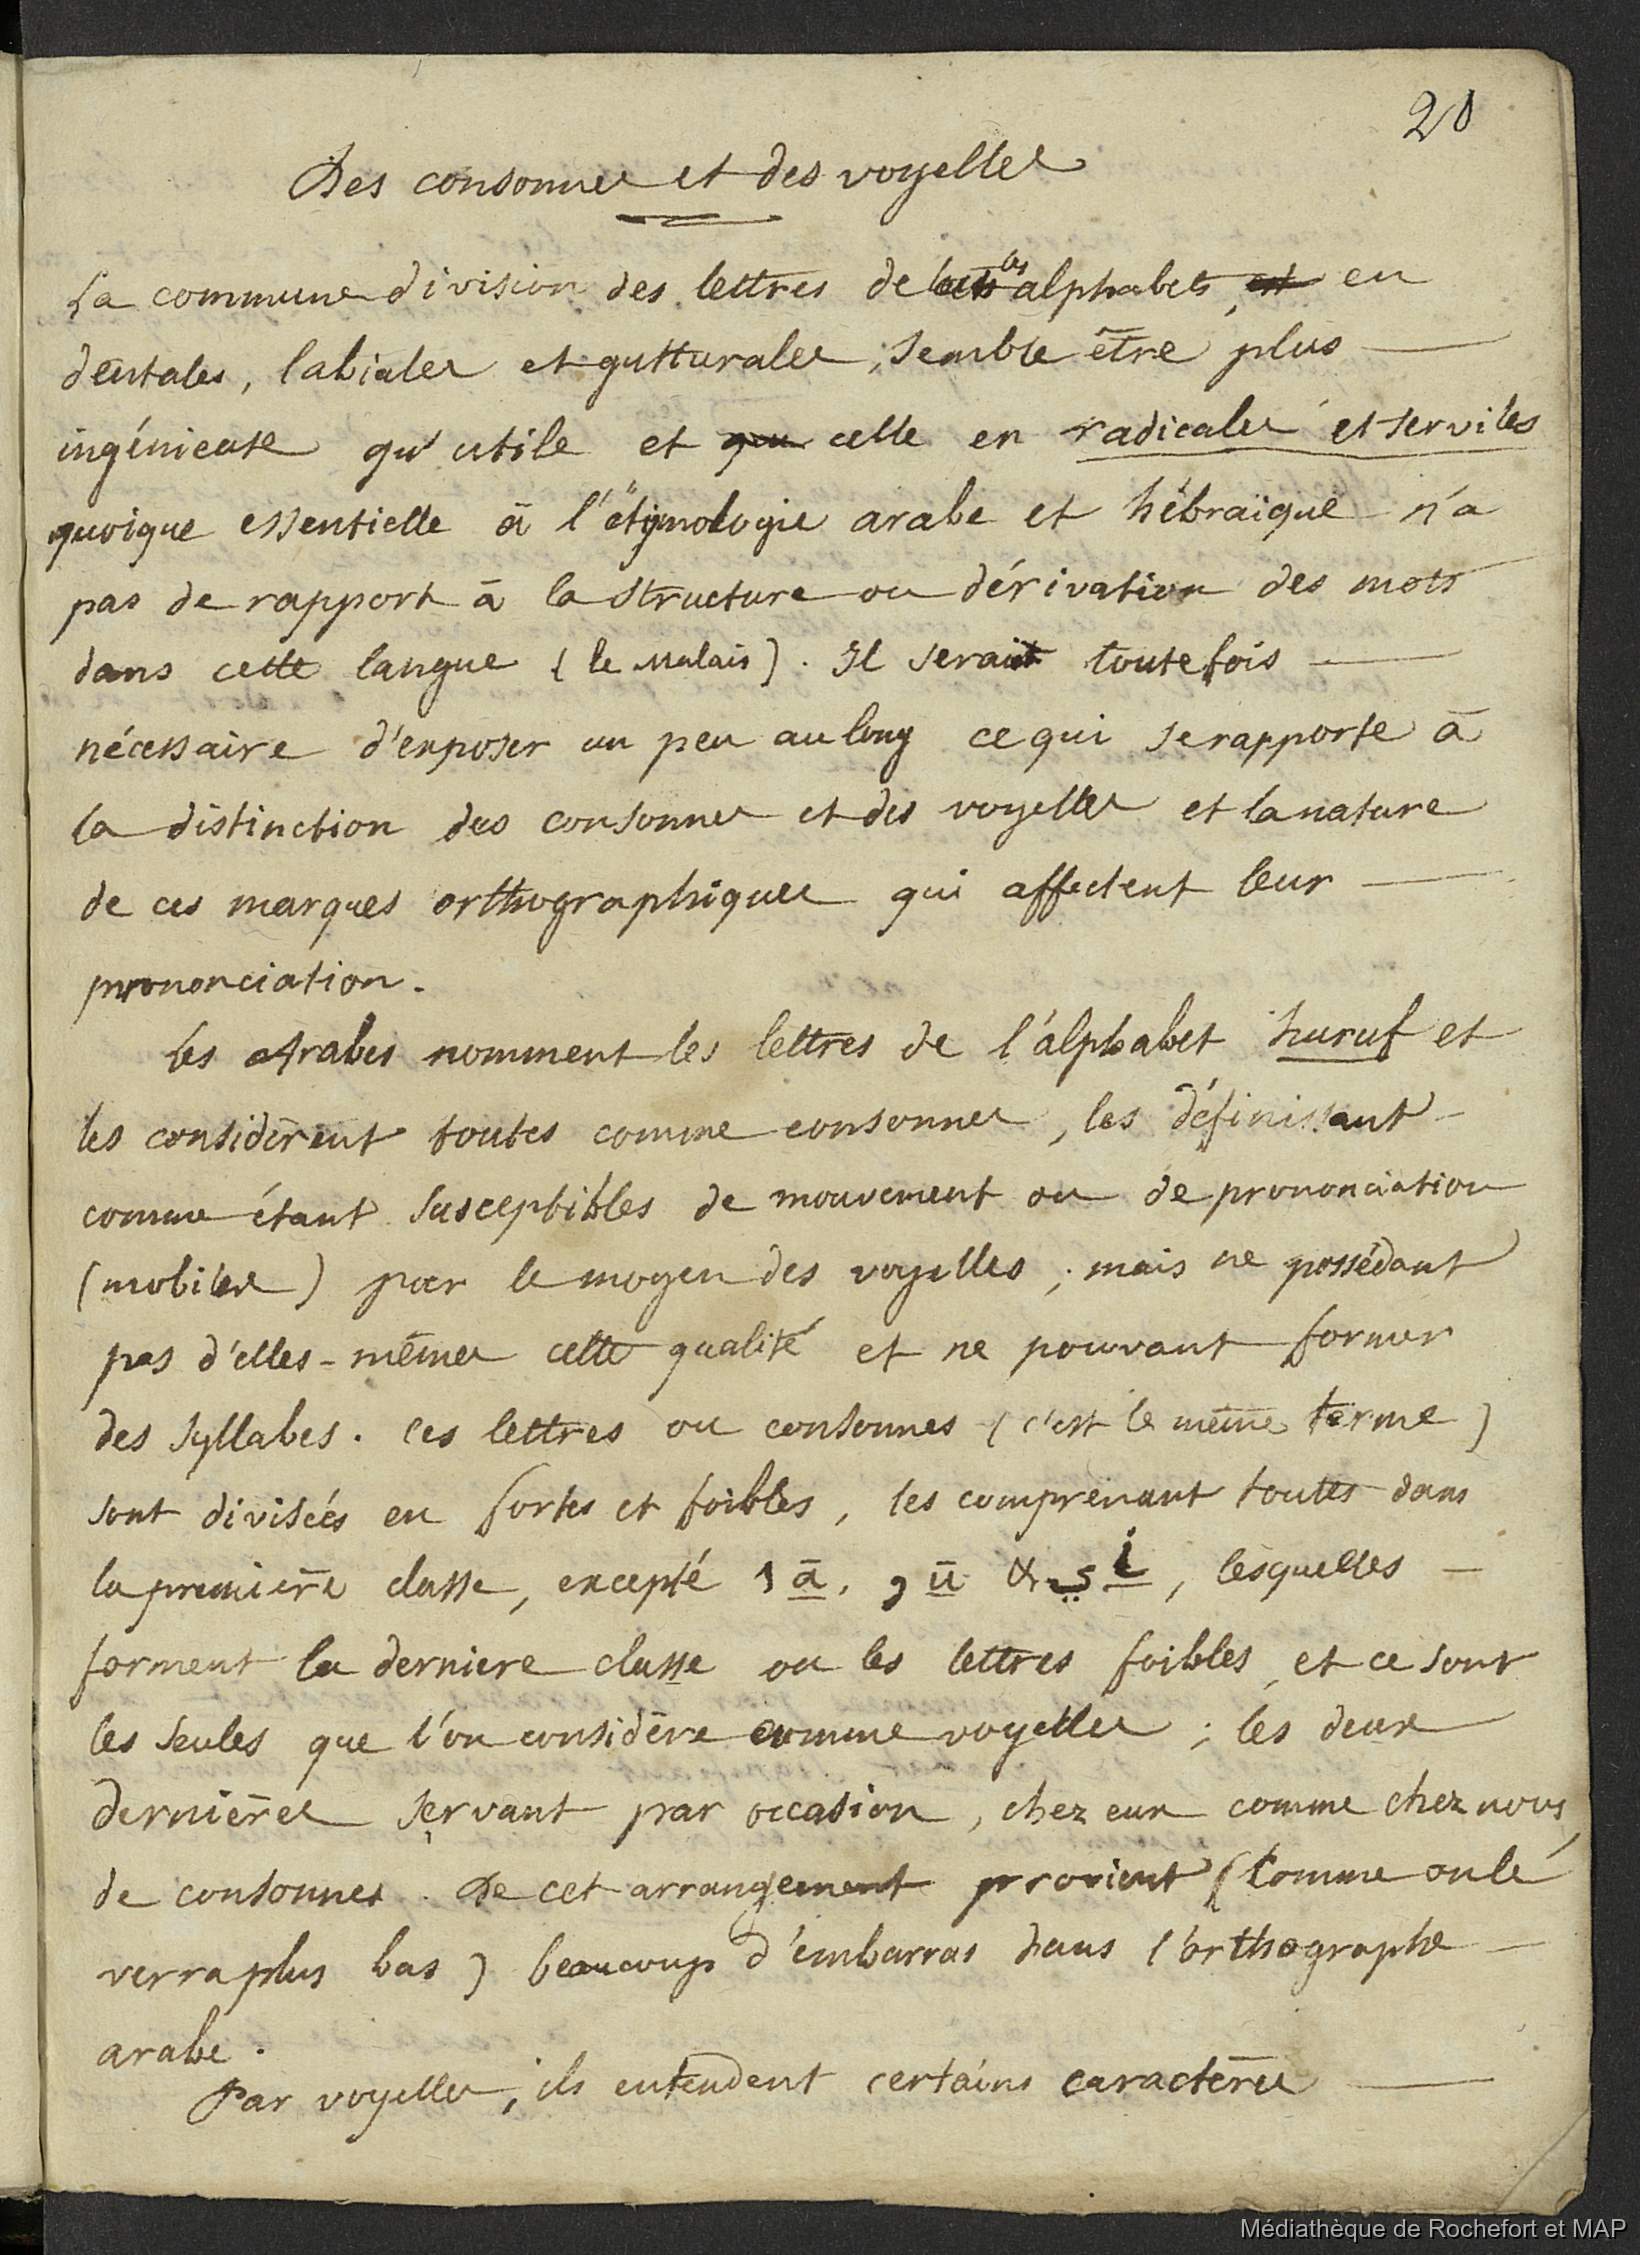 20
Des consonnes et des voyelles
La commune division des lettres de les alphabets, en
dentales, labiales et gutturales, semble être plus
ingénieuse qu'utile et celle en radicales et serviles
quoique essentielle à l'étymologie arabe et hébraïque n'a
pas de rapport à la structure ou dérivation des mots
dans cette langue (le Malais). Il serait toutefois
nécessaire d'exposer un peu au long ce qui se rapporte à
la distinction des consonnes et des voyelles et la nature
de ces marques orthographiques qui affectent leur
prononciation.
Les Arabes nomment les lettres de l'alphabet huruf et
les considèrent toutes comme consonnes, les définissant
comme étant susceptibles de mouvement ou de prononciation
(mobiles) par le moyen des voyelles; mais ne possédant
pas d'elles-mêmes cette qualité et ne pouvant former
des syllabes. Ces lettres ou consonnes (c'est le même terme)
sont divisées en fortes et foibles, les comprenant toutes dans
la première classe, excepté ا ā, و ū & ي i, lesquelles
forment la derniere classe ou les lettres foibles, et ce sont
les seules que l'on considère comme voyelles; les deux
dernières servant par occasion, chez eux comme chez nous,
de consonnes. De cet arrangement provient (comme on lé
verra plus bas) beaucoup d'embarras dans l'orthographe
arabe.
Par voyelles, ils entendent certains caractères
Médiathèque de Rochefort et MAP